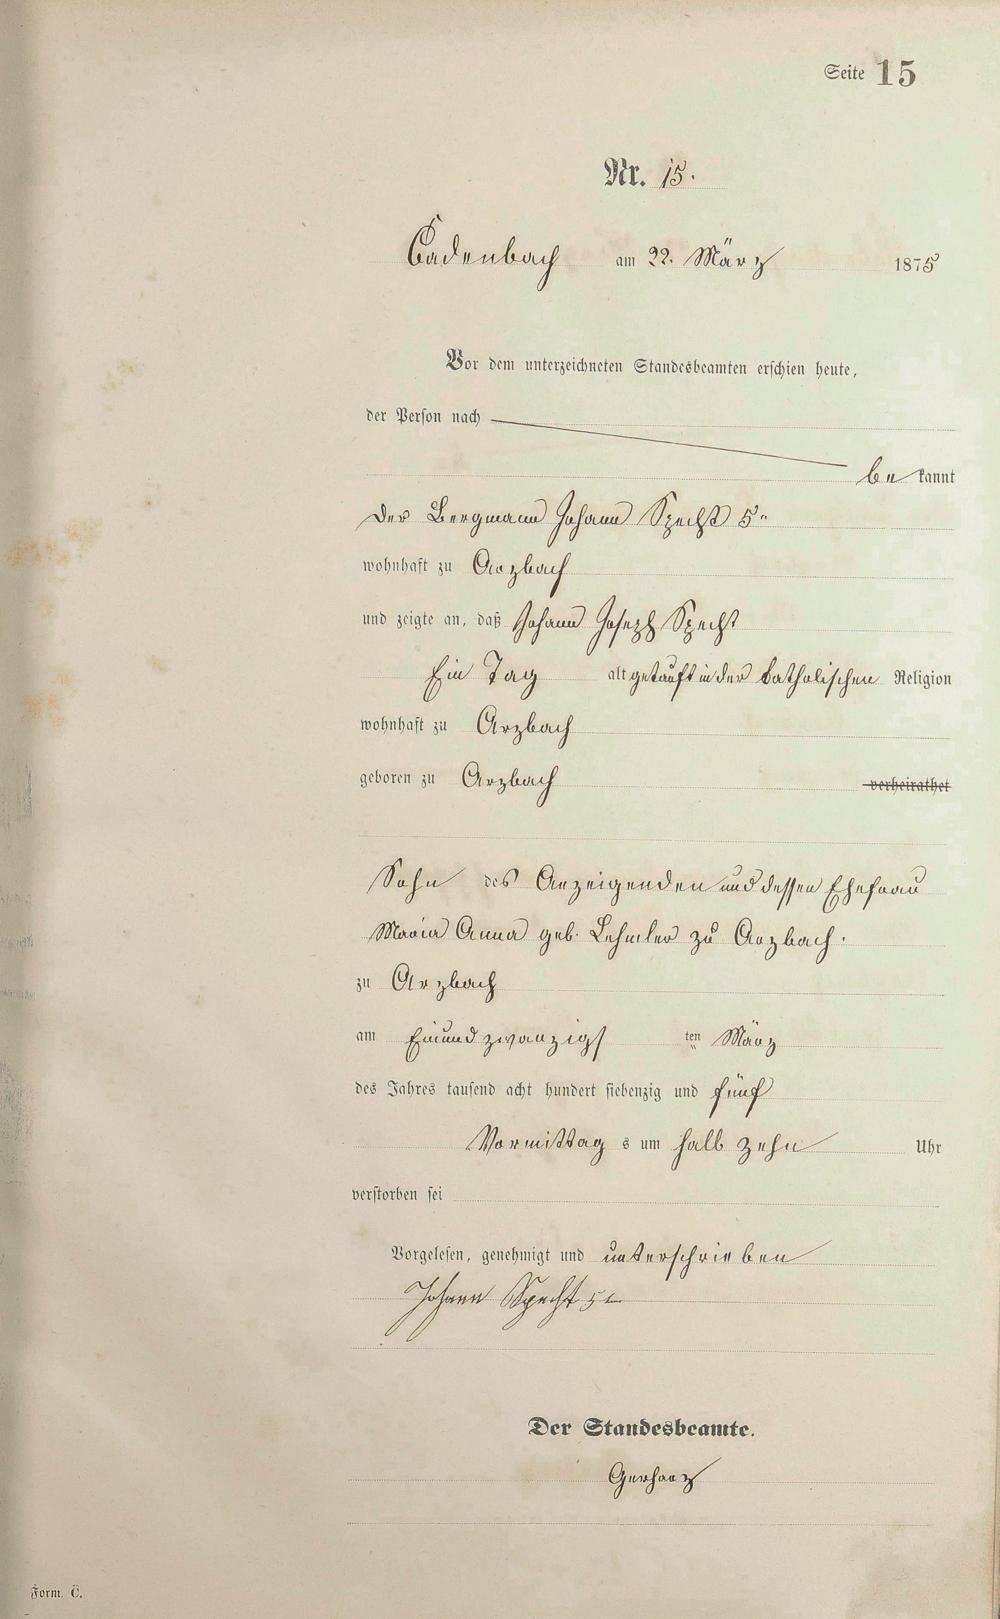 Seite 15
Nr. 15.
Cadenbach am 22. März 1875
Vor dem unterzeichneten Standesbeamten erschien heute,
der Person nach
be kannt
der Bergmann Johann Specht 5r
wohnhaft zu Arzbach
und zeigte an, daß Johann Joseph Specht
Ein Tag alt getauft in der katholischen Religion
wohnhaft zu Arzbach
geboren zu Arzbach verheirathet
Sohn des Anzeigenden und dessen Ehefrau
Maria Anna geb. Lehmler zu Arzbach.
zu Arzbach
am Einundzwanzigs ten März
des Jahres tausend acht hundert siebenzig und fünf
Vormittag s um halb zehn Uhr
verstorben sei
Vorgelesen, genehmigt und unterschrieben
Johann Specht 5r
Der Standesbeamte.
Gerharz
Form. C.